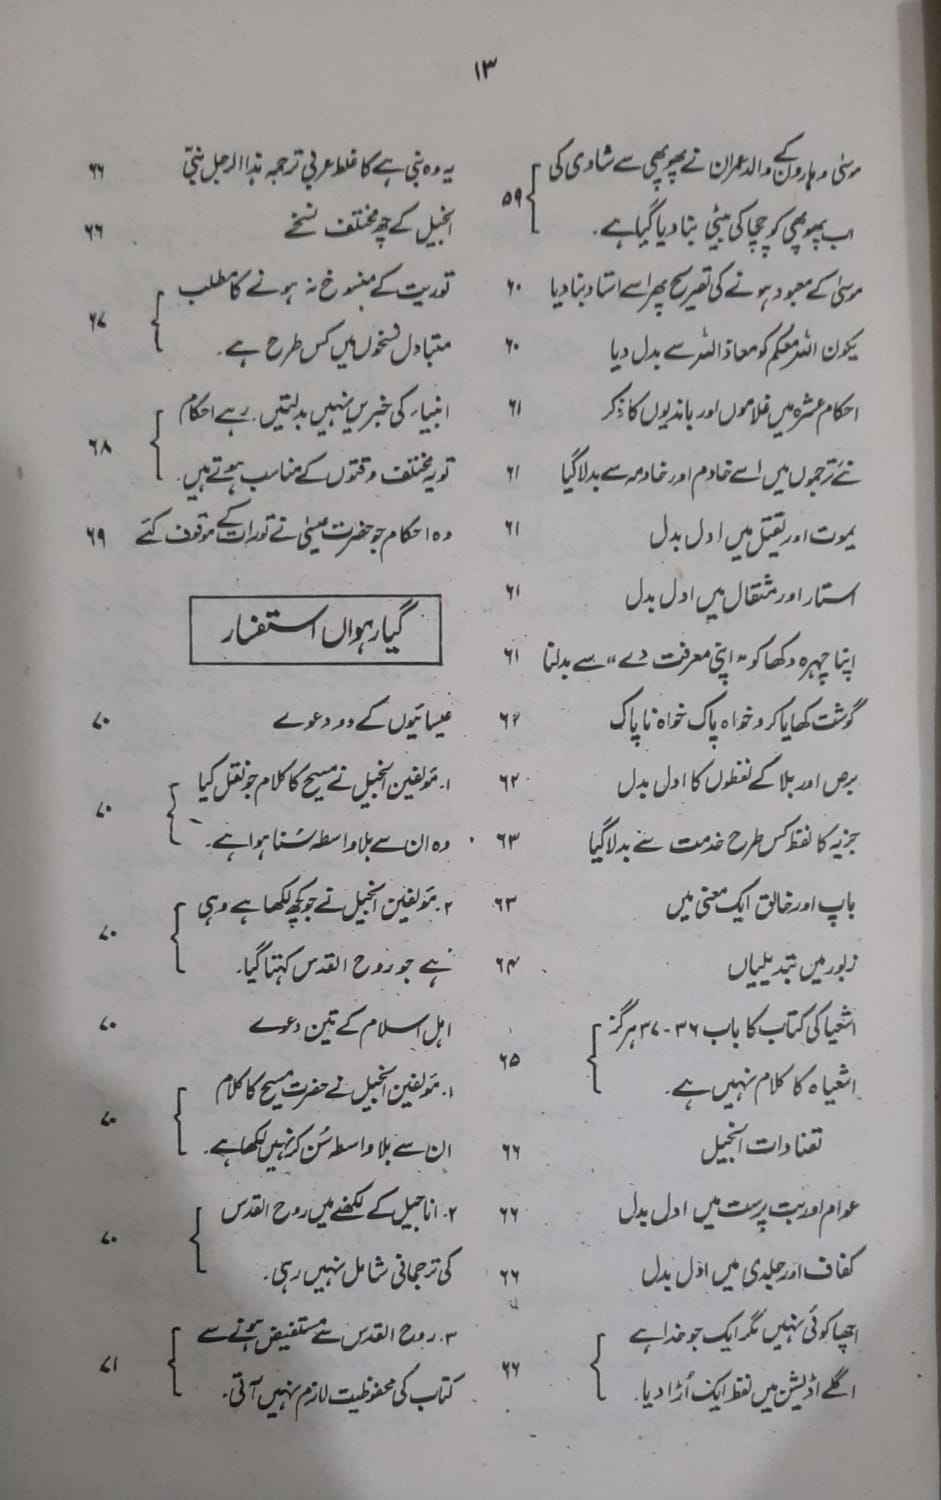 ۱۳
موسیٰ و ہارون کے والد عمران نے پھوپھی سے شادی کی
اب پھوپھی کو چچا کی بیٹی بنا دیا گیا ہے۔ ۵۹
موسیٰ کے معبود ہونے کی تصریح پھر اسے استاد بنا دیا ۶۰
یکون اللہ معکم کو معاذ اللہ سے بدل دیا ۶۰
احکام عشرہ میں غلاموں اور باندیوں کا ذکر ۶۱
نئے ترجموں میں اسے خادم اور خادمہ سے بدلا گیا ۶۱
یموت اور یقتل میں ادل بدل ۶۱
استار اور مثقال میں ادل بدل ۶۱
اپنا چہرہ دکھا کو "اپنی معرفت دے" سے بدلنا ۶۱
گوشت کھایا کرو خواہ پاک خواہ ناپاک ۶۲
برص اور بلا کے لفظوں کا ادل بدل ۶۲
جزیہ کا لفظ کس طرح خدمت سے بدلا گیا ۶۳
باپ اور خالق ایک معنی میں ۶۳
زبور میں تبدیلیاں ۶۴
اشعیا کی کتاب کا باب ۳۶-۳۷ ہرگز
اشعیاہ کا کلام نہیں ہے۔ ۶۵
تضادات انجیل ۶۶
عوام اور بت پرست میں ادل بدل ۶۶
کفاف اور جلدی میں ادل بدل ۶۶
اچھا کوئی نہیں مگر ایک جو خدا ہے
اگلے اڈیشن میں لفظ ایک اُڑا دیا۔ ۶۶
یہ وہ نبی ہے کا غلط عربی ترجمہ ہذا الرجل نبیّ ۶۶
انجیل کے چھ مختلف نسخے ۶۶
توریت کے منسوخ نہ ہونے کا مطلب
متبادل نسخوں میں کس طرح ہے۔ ۶۷
انبیاء کی خبریں نہیں بدلتیں۔ رہے احکام
تو یہ مختلف وقتوں کے مناسب ہوتے ہیں۔ ۶۸
وہ احکام جو حضرت عیسیٰ نے تورات کے موقوف کئے ۶۹
گیارہواں استفسار
عیسائیوں کے دو دعوے ۷۰
۱۔ مؤلفین انجیل نے مسیح کا کلام جو نقل کیا
وہ ان سے بلاواسطہ سُنا ہوا ہے۔ ۷۰
۲۔ مؤلفین انجیل نے جو کچھ لکھا ہے وہی
ہے جو روح القدس کہتا گیا۔ ۷۰
اہل اسلام کے تین دعوے ۷۰
۱۔ مؤلفین انجیل نے حضرت مسیح کا کلام
ان سے بلا واسطہ سُن کر نہیں لکھا ہے۔ ۷۰
۲۔ اناجیل کے لکھنے میں روح القدس
کی ترجمانی شامل نہیں رہی۔ ۷۰
۳۔ روح القدس سے مستفیض ہونے سے
کتاب کی محفوظیت لازم نہیں آتی۔ ۷۱